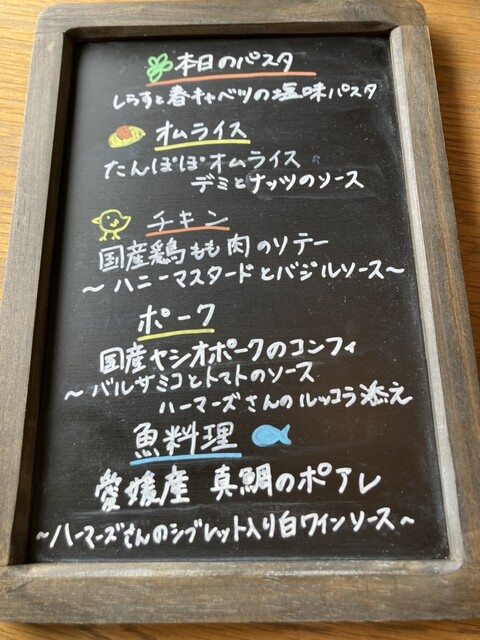 本日のパスタ
しらすと春キャベツの塩味パスタ
オムライス
たんぽぽオムライス
デミとナッツのソース
チキン
国産鶏もも肉のソテー
～ハニーマスタードとバジルソース～
ポーク
国産ヤシオポークのコンフィ
～バルサミコとトマトのソース
ハーマーズさんのルッコラ添え
魚料理
愛媛産 真鯛のポアレ
～ハーマーズさんのシブレット入り白ワインソース～